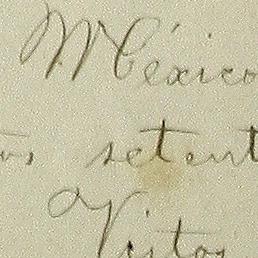 México
setent
Vistos